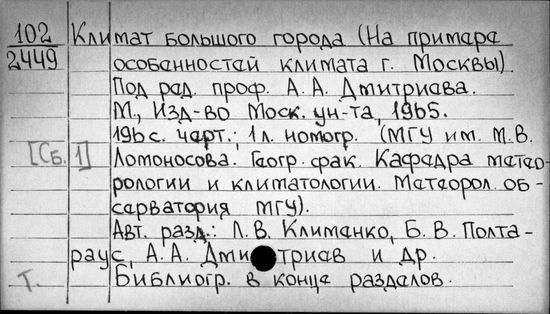 102
2449
Климат большого города (На примере
особенностей климата г. Москвы)
Под ред. проф. А. А. Дмитриева.
М., Изд-во Моск. ун-та, 1965.
196 с. черт.; 1 л. номогр. (МГУ им. М.В.
[Сб. 1] Ломоносова. Геогр. фак. Кафедра метео-
рологии и климатологии. Метеорол. об-
серватория МГУ).
Авт. разд.: Л. В. Клименко, Б. В. Полта-
раус, А. А. Дми триев и др.
Т. Библиогр. в конце разделов.